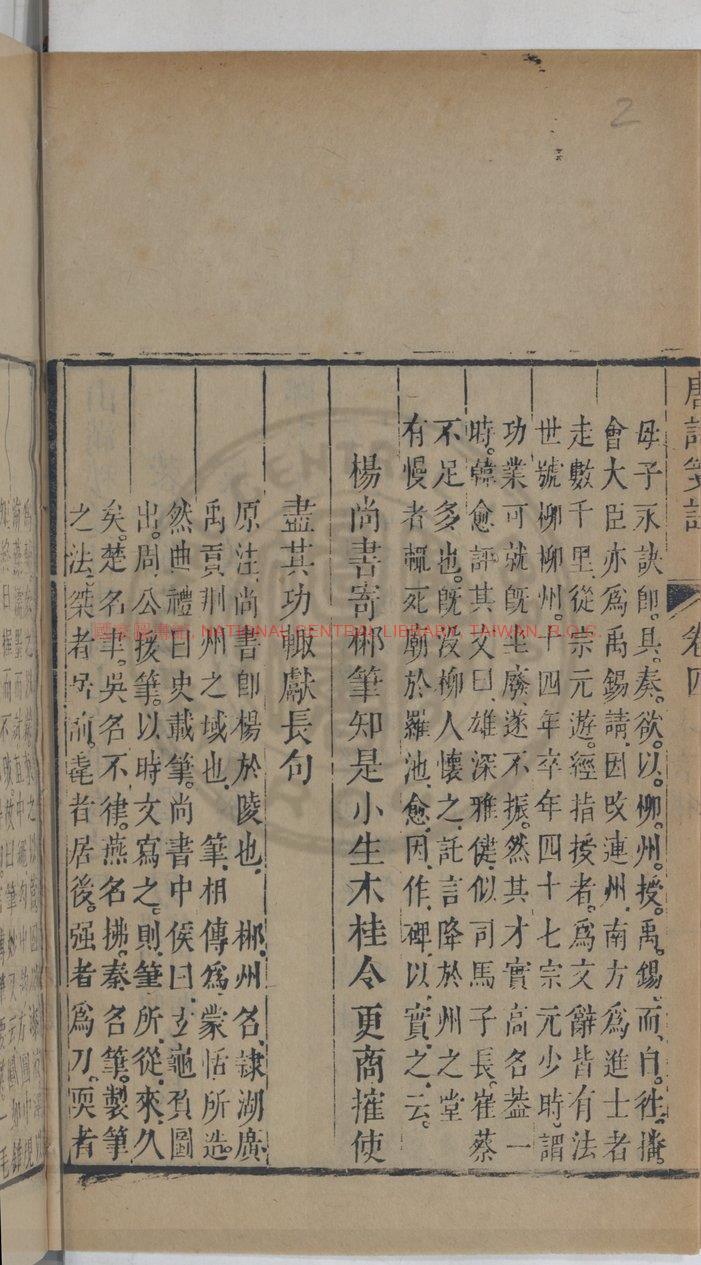 唐詩箋註 卷四
母子永訣即具奏欲以柳州授禹錫而自往播
會大臣亦爲禹錫請因攺連州南方爲進士者
走數千里從宗元遊經指授者爲文辭皆有法
世號柳柳州十四年卒年四十七宗元少時謂
功業可就旣坐廢遂不振然其才實高名葢一
時韓愈評其文曰雄深雅健似司馬子長崔蔡
不足多也旣没柳人懷之託言降於州之堂
有慢者輒死廟於羅池愈因作碑以實之云
楊尚書寄郴筆知是小生本桂令更商搉使
盡其功輙獻長句
原注尚書即楊於陵也 郴州名隷湖廣
禹貢荆州之域也 筆相傳爲蒙恬所造
然曲禮曰史載筆尚書中侯曰玄龜負圖
出周公援筆以時文寫之則筆所從來久
矣楚名聿吳名不律燕名拂秦名筆製筆
之法桀者居前毳者居後强者爲刀耎者
2
國家圖書館, NATIONAL CENTRAL LIBRARY, TAIWAN, R.O.C.